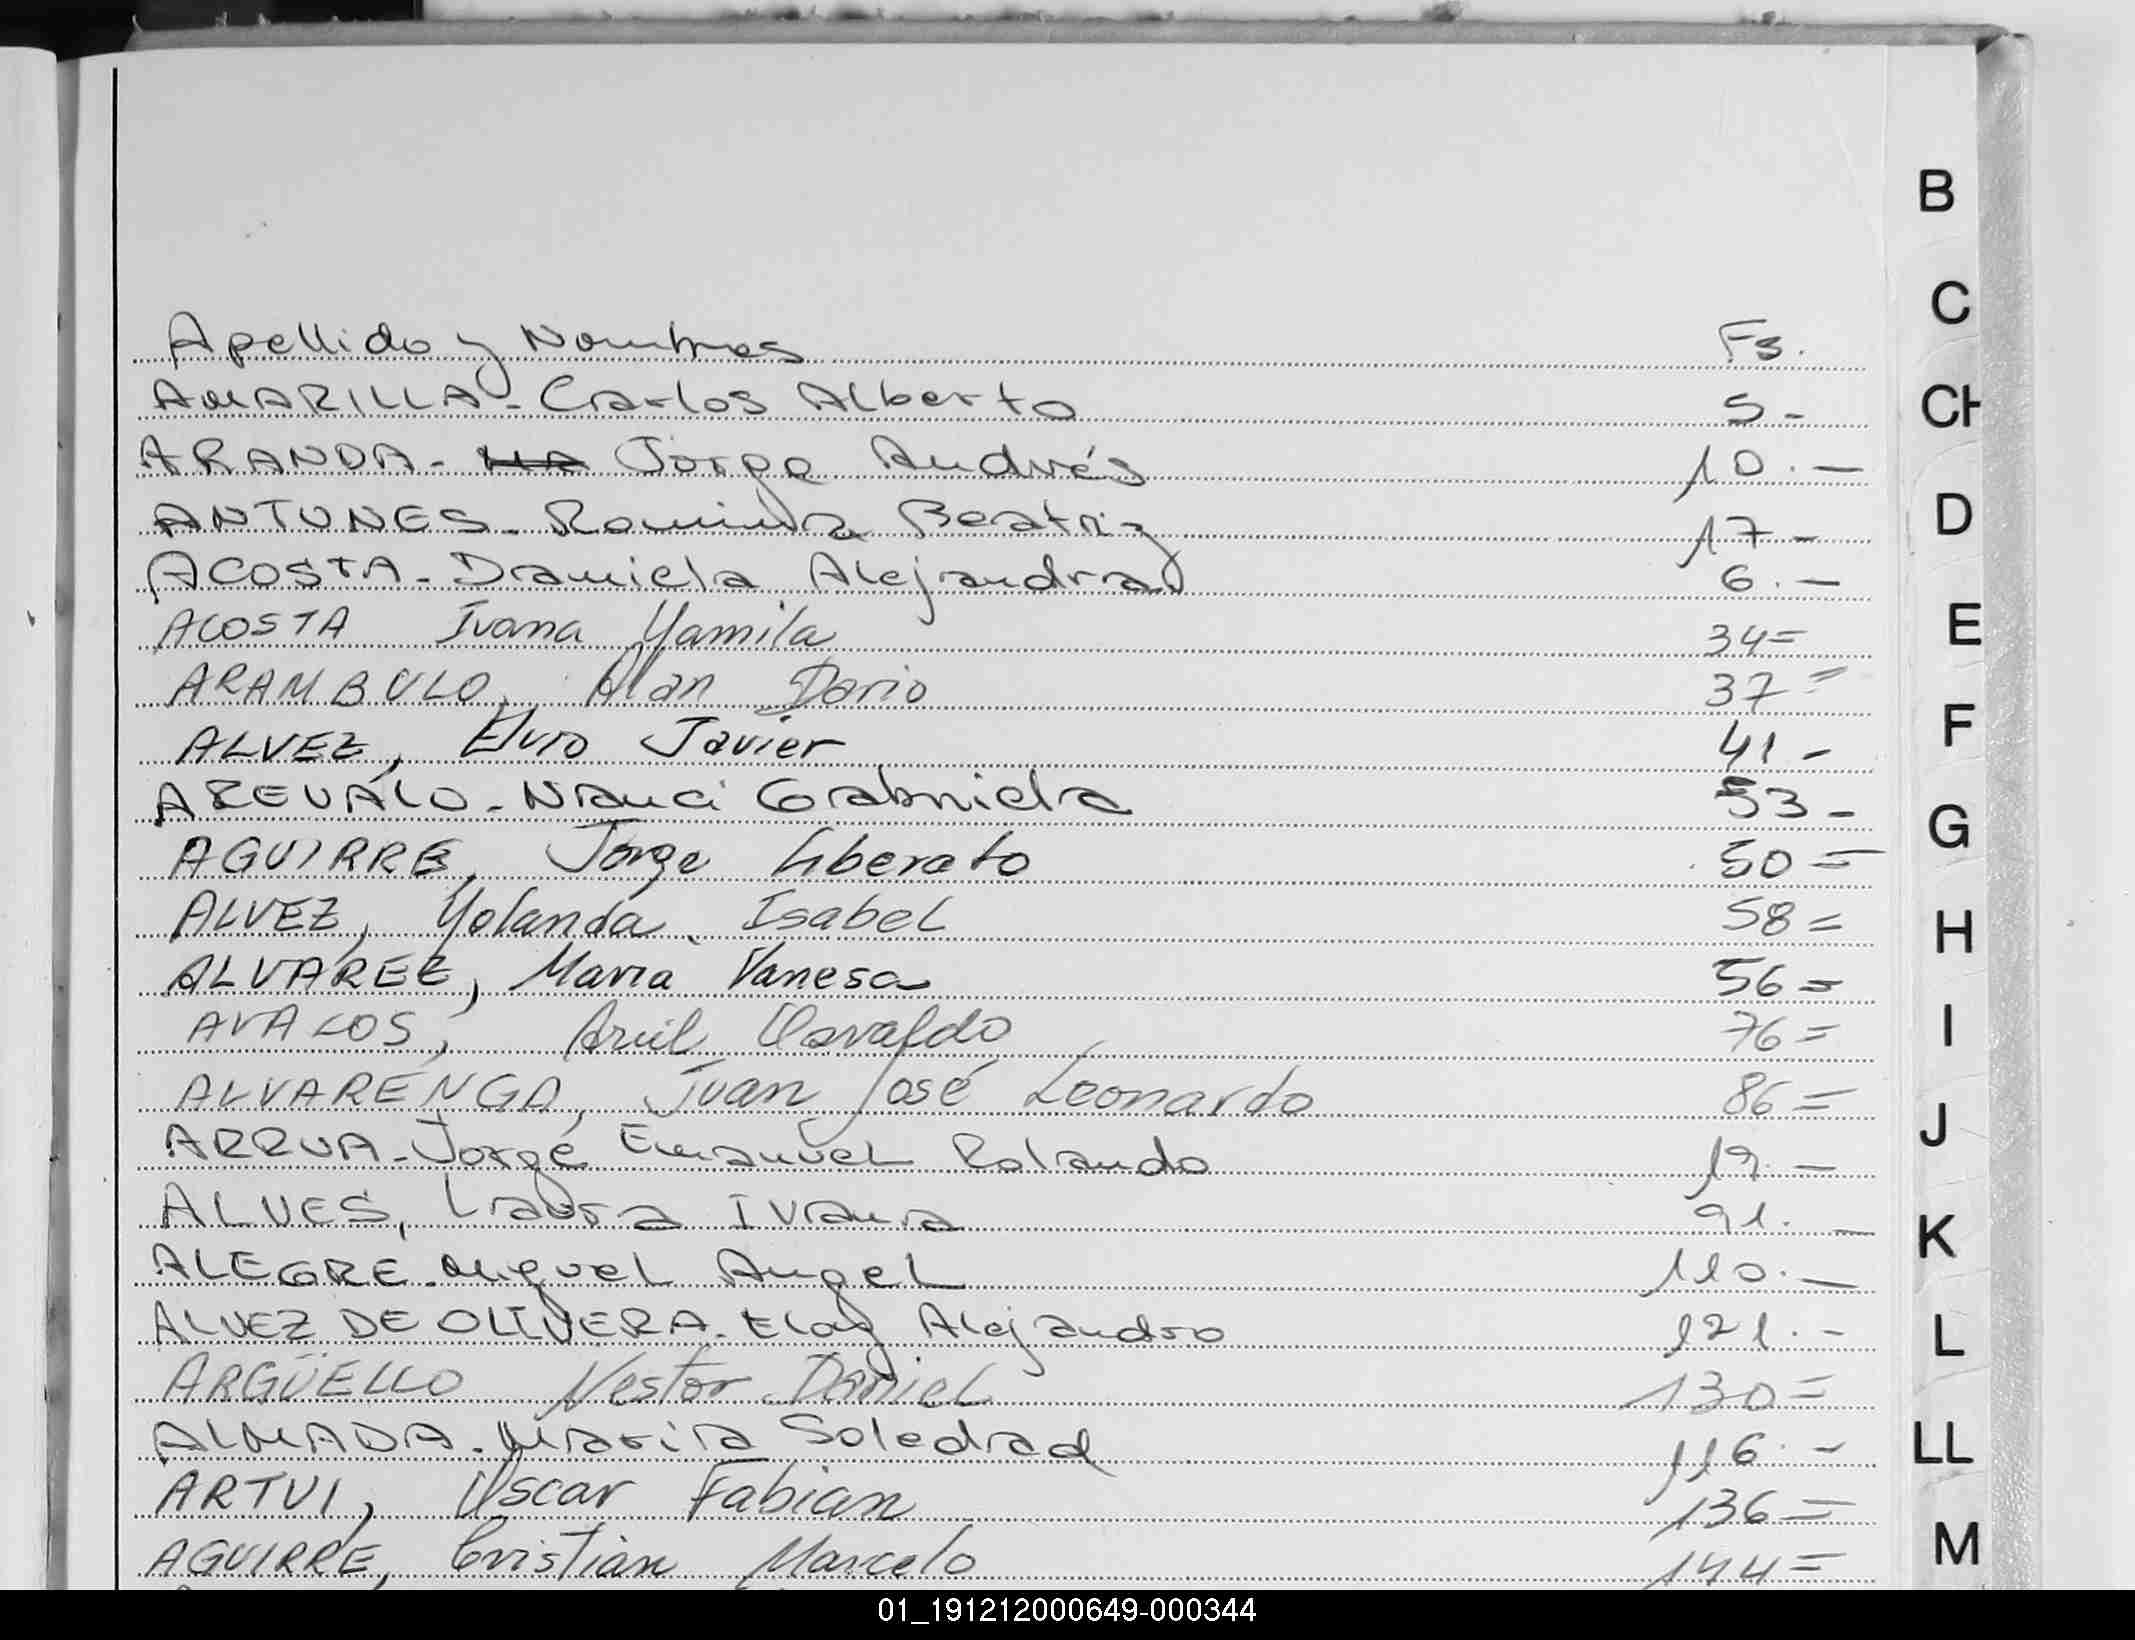 Apellido y Nombres Fs.
AMARILLA - Carlos Alberto 5 -
ARANDA - Jorge Andrés 10. —
ANTUNES - Romina Beatriz 17 -
ACOSTA - Daniela Alejandra 6. —
ACOSTA Ivana Yamila 34 =
ARAMBULO, Alan Dario 37 =
ALVEZ, Elvio Javier 41 -
AREVALO - Nanci Gabriela 53 -
AGUIRRE, Jorge Liberato 50 =
ALVEZ, Yolanda Isabel 58 =
ALVAREZ, Maria Vanesa 56 =
AVALOS, Osvaldo 76 =
ALVARENGA, Juan José Leonardo 86 =
ARRUA - Jorge Emanuel Rolando 19. —
ALVES, Laura Ivana 91. —
ALEGRE - Miguel Angel 110. —
ALVEZ DE OLIVERA - Eloy Alejandro 121. -
ARGÜELLO Nestor Daniel 130 =
ALMADA - Maria Soledad 116. -
ARTUI, Oscar Fabian 136 =
AGUIRRE, Cristian Marcelo 144 =
B
C
CH
D
E
F
G
H
I
J
K
L
LL
M
01_191212000649-000344